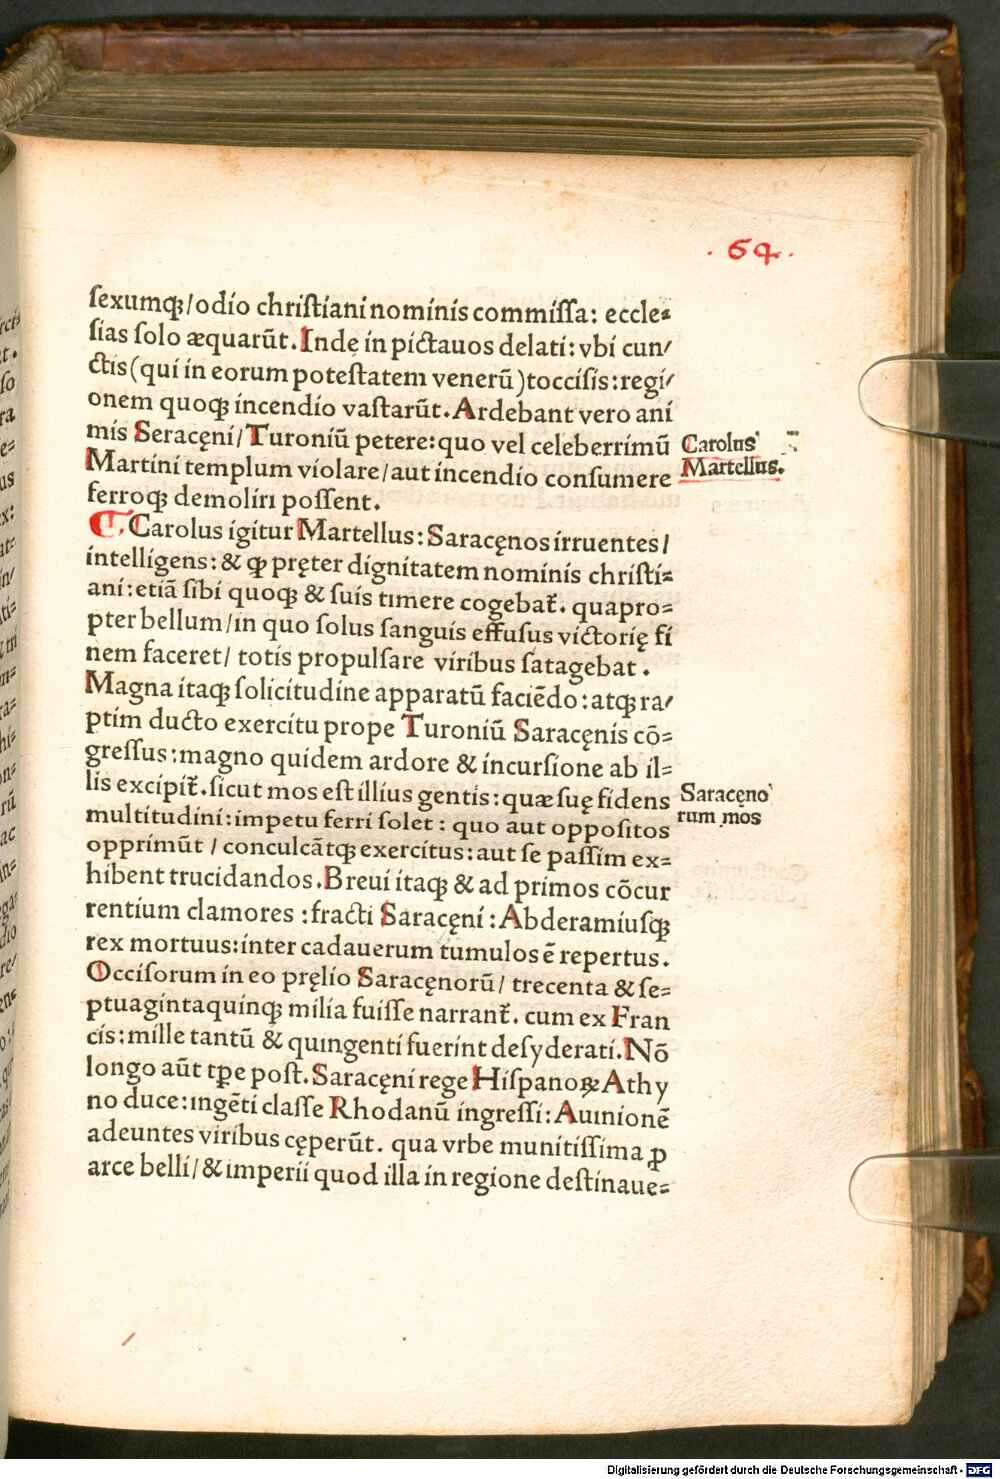 .64.
sexumqꝫ/odio christiani nominis commissa: eccle⸗
sias solo æquarūt. Inde in pictauos delati: vbi cun/
ctis (qui in eorum potestatem venerū) toccisis: regi/
onem quoqꝫ incendio vastarūt. Ardebant vero ani
mis Seracęni/ Turoniū petere: quo vel celeberrimū
Martini templum violare/ aut incendio consumere
ferroqꝫ demoliri possent.
Carolus
Martellus.
¶ Carolus igitur Martellus: Saracęnos irruentes/
intelligens: & ꝙ pręter dignitatem nominis christi⸗
ani: etiā sibi quoqꝫ & suis timere cogebat᷑. quapro⸗
pter bellum/ in quo solus sanguis effusus victorię fi
nem faceret/ totis propulsare viribus satagebat.
Magna itaqꝫ solicitudine apparatū faciēdo: atqꝫ ra/
ptim ducto exercitu prope Turoniū Saracęnis cō⸗
gressus: magno quidem ardore & incursione ab il⸗
lis excipit᷑. sicut mos est illius gentis: quæ suę fidens
multitudini: impetu ferri solet: quo aut oppositos
opprimūt / conculcātqꝫ exercitus: aut se passim ex⸗
hibent trucidandos. Breui itaqꝫ & ad primos cōcur
rentium clamores: fracti Saracęni: Abderamiusqꝫ
rex mortuus: inter cadauerum tumulos ē repertus.
Saracęno
rum mos
Occisorum in eo pręlio Saracęnorū/ trecenta & se⸗
ptuagintaquinqꝫ milia fuisse narrant᷑. cum ex Fran
cis: mille tantū & quingenti fuerint desyderati. Nō
longo aūt tꝑe post. Saracęni rege Hispanoꝝ Athy
no duce: ingēti classe Rhodanū ingressi: Auinionē
adeuntes viribus cęperūt. qua vrbe munitissima ꝑ
arce belli/ & imperii quod illa in regione destinaue⸗
Digitalisierung gefördert durch die Deutsche Forschungsgemeinschaft - DFG